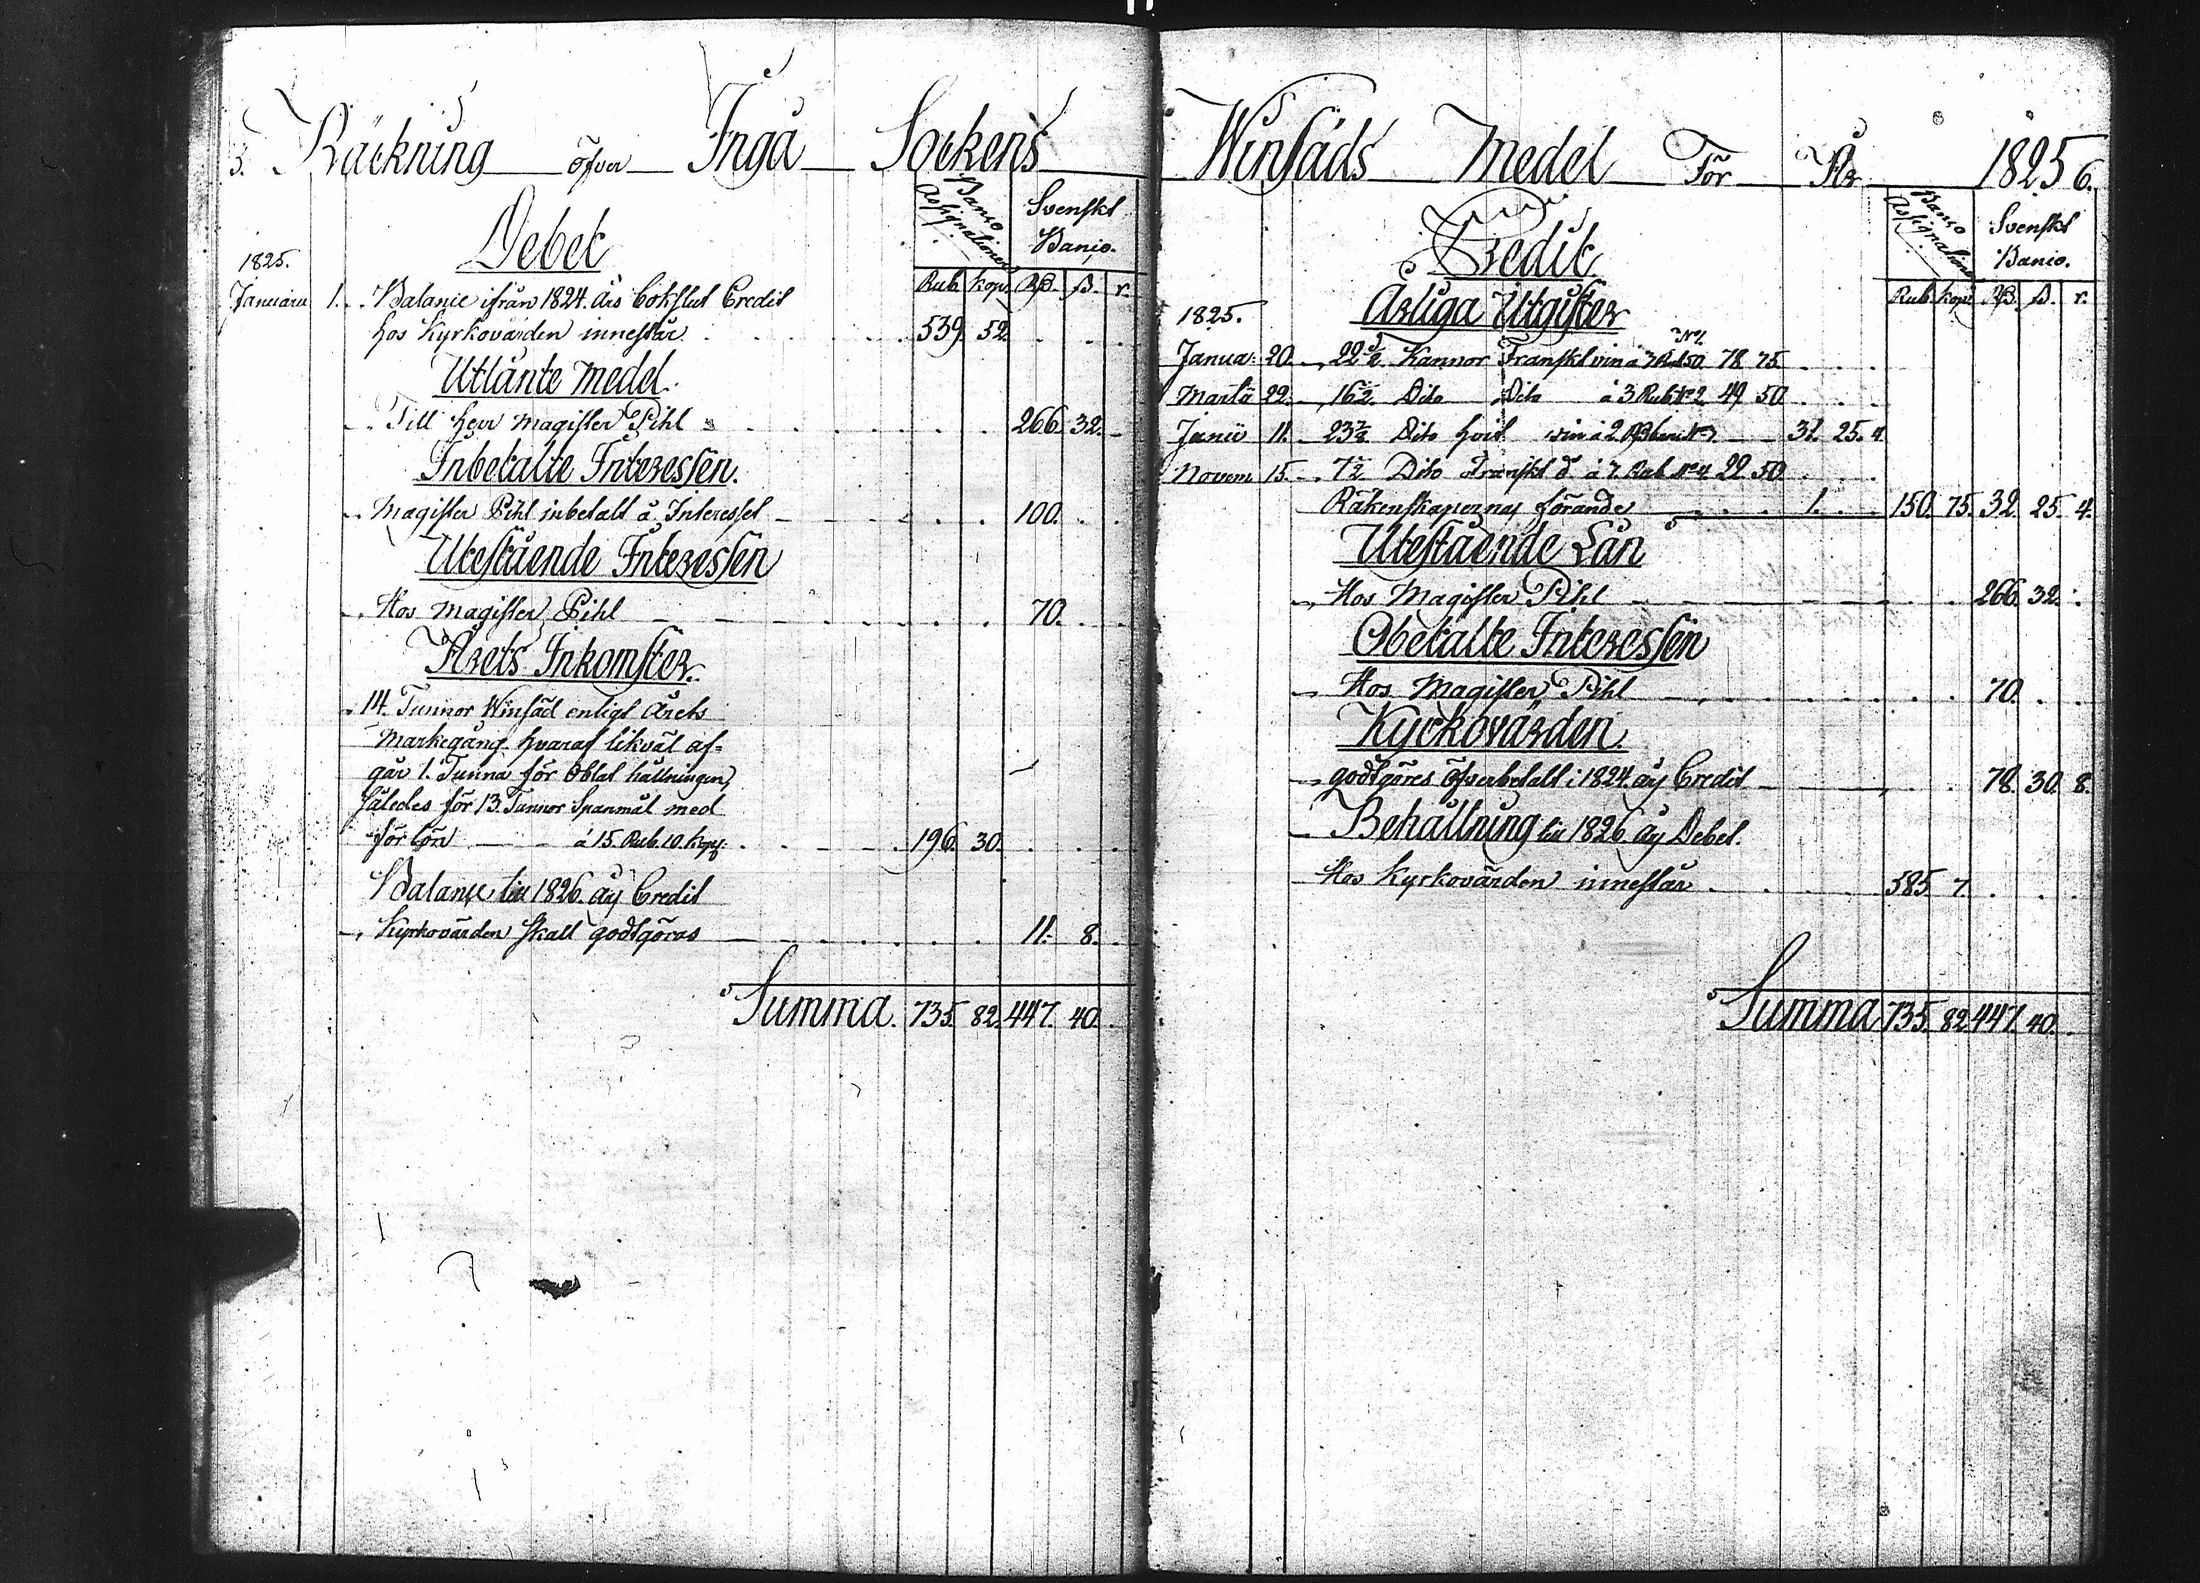 5. Räckning öfver Ingå Sockens
Debet
Banco Assignationer
Svenskt Banco.
Rub. kop. Rß. ß. r.
1825.
Januarii 1. Balance ifrån 1824. års bokslut Credit
hos Kyrkovärden innestår. 539. 52.
Utlånte Medel.
Till herr Magister Pihl 266. 32.
Inbetalte Interessen.
Magister Pihl inbetalt å Interesset 100.
Utestående Interessen
Hos Magister Pihl 70.
Årets Inkomster.
14. Tunnor Winsäd enligt årets
Markegång hvaraf likväl af=
går 1. Tunna för Oblat hållningen,
således för 13. Tunnor Spanmål med
förlön á 15. Rub. 10. kop. 196. 30.
Balance till 1826. års Credit
Kyrkovärden skall godtgöras 11. 8.
Summa. 735. 82. 447. 40.
Winsäds Medel För År 1825 6.
Credit
Banco Assignationer
Svenskt Banco.
Rub. kop. Rß. ß. r.
Årliga Utgifter
1825.
Janua: 20. 22½ Kannor Franskt vin á 3 Rub 50 No 1. 78 75
Martii 22. 16½ Dito Dito á 3 Rub No 2 49 50
Junii 11. 23½ Dito hvit vin á 2 Rß No 3 31 25. 4
Novem 15. 7½ Dito Franskt d:o á 3 Rub No 4 22 50
Räkenskapernas förande 1. 150. 75. 32. 25. 4.
Utestående Lån
Hos Magister Pihl 266. 32.
Obetalte Interessen
Hos Magister Pihl 70.
Kyrkovärden.
godtgöres öfverbetalt i 1824. års Credit 78. 30. 8.
Behållning till 1826. års Debet.
Hos Kyrkovärden innestår 585 7.
Summa 735. 82 447. 40.